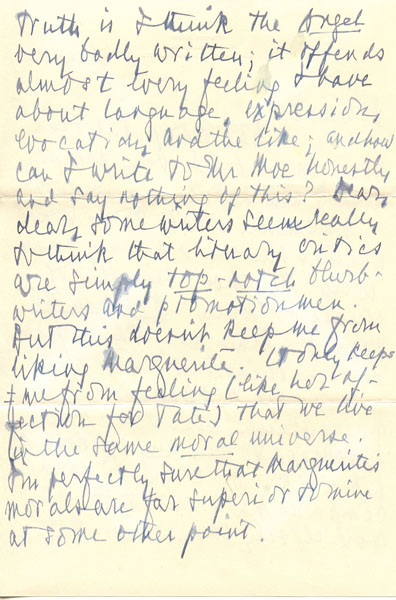 Truth is I think the Angel
very badly written; it offends
almost every feeling I have
about language, expression,
evocation, and the like; and how
can I write to Mr Moe honestly
and say nothing of this? Dear,
dear, some writers seem really
to think that literary critics
are simply top-notch blurb-
writers and promotion men.
But this doesn't keep me from
liking Marguerite. It only keeps
me from feeling (like her af-
fection for Tate) that we live
in the same moral universe.
I'm perfectly sure that Marguerite's
morals are far superior to mine
at some other point.